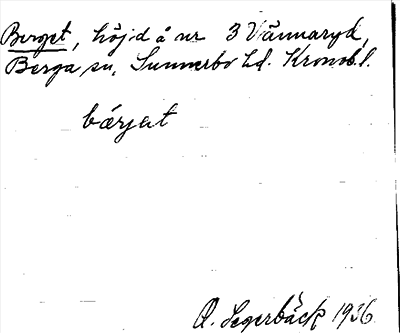 Berget, höjd å nr 3 Vännaryd,
Berga sn, Sunnerbo hd. Kronob. l.
bärjet
A. Segerbäck 1936